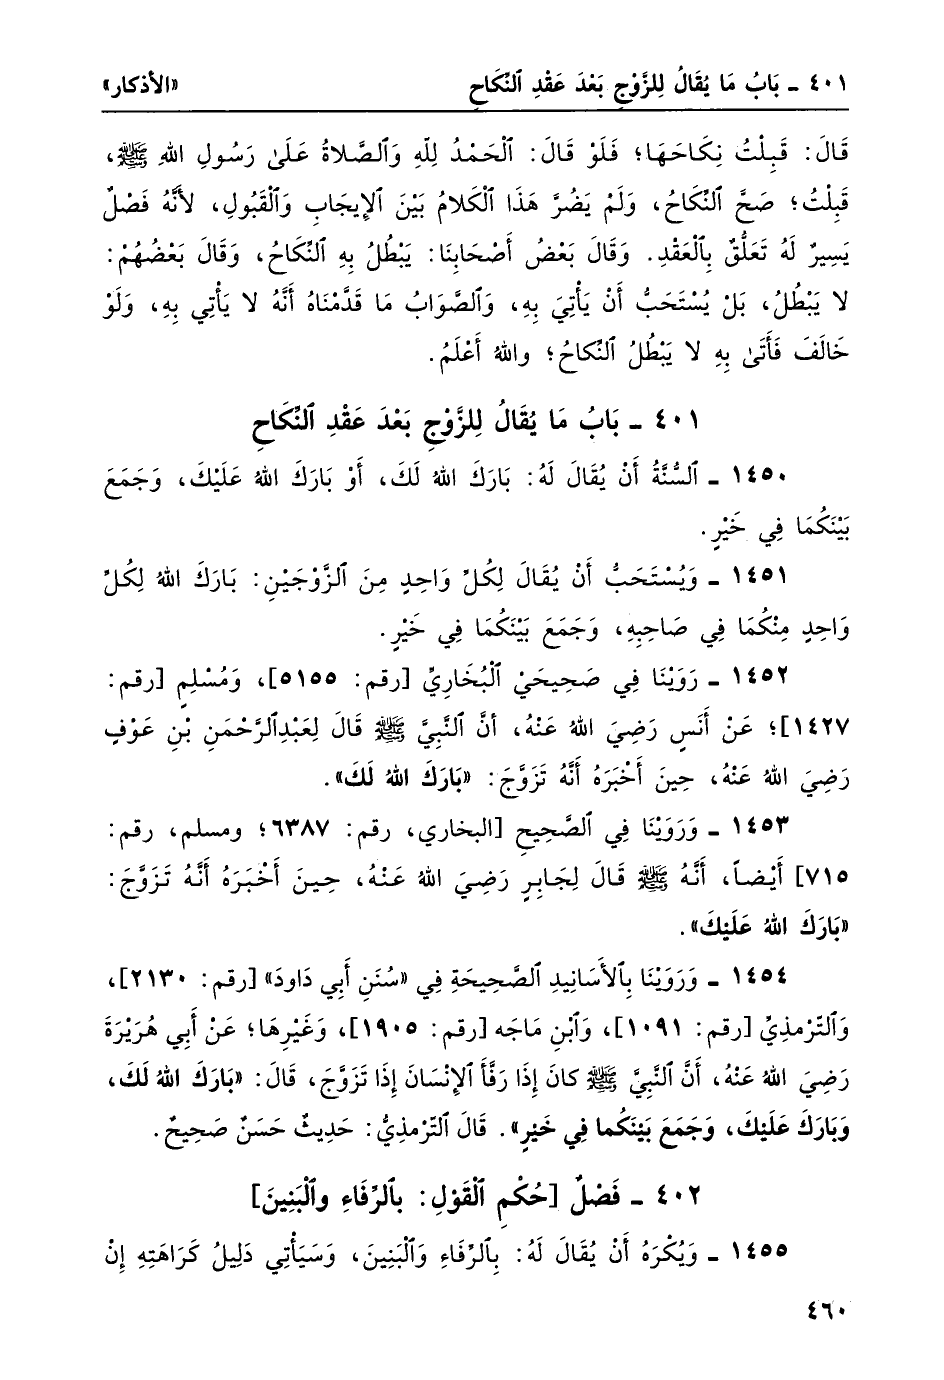 ٤٠١ ـ بَابُ مَا يُقَالُ لِلزَّوْجِ بَعْدَ عَقْدِ ٱلنِّكَاحِ «الأذكار»
قَالَ: قَبِلْتُ نِكَاحَهَا؛ فَلَوْ قَالَ: ٱلْحَمْدُ لِلّهِ وَٱلصَّلاةُ عَلَىٰ رَسُولِ اللهِ ﷺ،
قَبِلْتُ؛ صَحَّ ٱلنِّكَاحُ، وَلَمْ يَضُرَّ هَذَا ٱلْكَلامُ بَيْنَ ٱلإِيجَابِ وَٱلْقَبُولِ، لأنَّهُ فَصْلٌ
يَسِيرٌ لَهُ تَعَلُّقٌ بِٱلْعَقْدِ. وَقَالَ بَعْضُ أَصْحَابِنَا: يَبْطُلُ بِهِ ٱلنِّكَاحُ، وَقَالَ بَعْضُهُمْ:
لا يَبْطُلُ، بَلْ يُسْتَحَبُّ أَنْ يَأْتِيَ بِهِ، وَٱلصَّوَابُ مَا قَدَّمْنَاهُ أَنَّهُ لا يَأْتِي بِهِ، وَلَوْ
خَالَفَ فَأَتَىٰ بِهِ لا يَبْطُلُ ٱلنِّكاحُ؛ واللهُ أَعْلَمُ.
٤٠١ ـ بَابُ مَا يُقَالُ لِلزَّوْجِ بَعْدَ عَقْدِ ٱلنِّكَاحِ
١٤٥٠ ـ ٱلسُّنَّةُ أَنْ يُقَالَ لَهُ: بَارَكَ اللهُ لَكَ، أَوْ بَارَكَ اللهُ عَلَيْكَ، وَجَمَعَ
بَيْنَكُمَا فِي خَيْرٍ.
١٤٥١ ـ وَيُسْتَحَبُّ أَنْ يُقَالَ لِكُلِّ وَاحِدٍ مِنَ ٱلزَّوْجَيْنِ: بَارَكَ اللهُ لِكُلِّ
وَاحِدٍ مِنْكُمَا فِي صَاحِبِهِ، وَجَمَعَ بَيْنَكُمَا فِي خَيْرٍ.
١٤٥٢ ـ رَوَيْنَا فِي صَحِيحَيْ ٱلْبُخَارِيِّ [رقم: ٥١٥٥]، وَمُسْلِمٍ [رقم:
١٤٢٧]؛ عَنْ أَنَسٍ رَضِيَ اللهُ عَنْهُ، أنَّ ٱلنَّبِيَّ ﷺ قَالَ لِعَبْدِٱلرَّحْمَنِ بْنِ عَوْفٍ
رَضِيَ اللهُ عَنْهُ، حِينَ أَخْبَرَهُ أَنَّهُ تَزَوَّجَ: «بَارَكَ اللهُ لَكَ».
١٤٥٣ ـ وَرَوَيْنَا فِي ٱلصَّحِيحِ [البخاري، رقم: ٦٣٨٧؛ ومسلم، رقم:
٧١٥] أَيْضاً، أَنَّهُ ﷺ قَالَ لِجَابِرٍ رَضِيَ اللهُ عَنْهُ، حِينَ أَخْبَرَهُ أَنَّهُ تَزَوَّجَ:
«بَارَكَ اللهُ عَلَيْكَ».
١٤٥٤ ـ وَرَوَيْنَا بِٱلأَسَانِيدِ ٱلصَّحِيحَةِ فِي «سُنَنِ أَبِي دَاودَ» [رقم: ٢١٣٠]،
وَٱلتِّرْمِذِيِّ [رقم: ١٠٩١]، وَٱبْنِ مَاجَه [رقم: ١٩٠٥]، وَغَيْرِهَا؛ عَنْ أَبِي هُرَيْرَةَ
رَضِيَ اللهُ عَنْهُ، أَنَّ ٱلنَّبِيَّ ﷺ كانَ إِذَا رَفَّأَ ٱلإِنْسَانَ إِذَا تَزَوَّجَ، قَالَ: «بَارَكَ اللهُ لَكَ،
وَبَارَكَ عَلَيْكَ، وَجَمَعَ بَيْنَكُما فِي خَيْرٍ». قَالَ ٱلتِّرْمِذِيُّ: حَدِيثٌ حَسَنٌ صَحِيحٌ.
٤٠٢ ـ فَصْلٌ [حُكْمِ ٱلْقَوْلِ: بِٱلرِّفَاءِ وٱلْبَنِينَ]
١٤٥٥ ـ وَيُكْرَهُ أَنْ يُقَالَ لَهُ: بِٱلرِّفَاءِ وَٱلْبَنِينَ، وَسَيَأْتِي دَلِيلُ كَرَاهَتِهِ إِنْ
٤٦٠